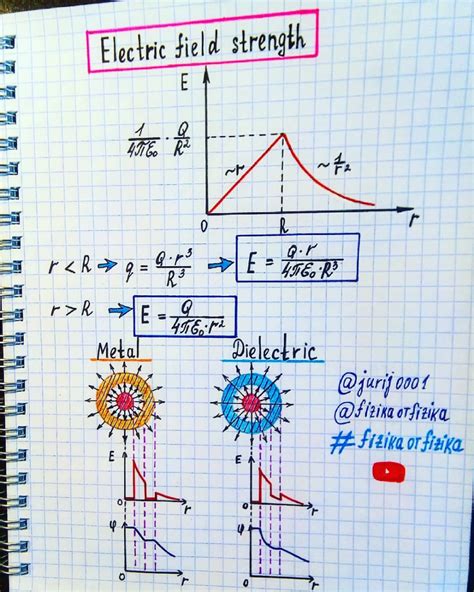 Electric field strength
E
1/4πε₀ · Q/R²
~r
~1/r²
0
R
r
r < R → q = Q·r³/R³ → E = Q·r/4πε₀·R³
r > R → E = Q/4πε₀·r²
Metal
Dielectric
@jurij0001
@fizikaorfizika
#fizikaorfizika
E
0
r
E
0
r
φ
0
r
φ
0
r